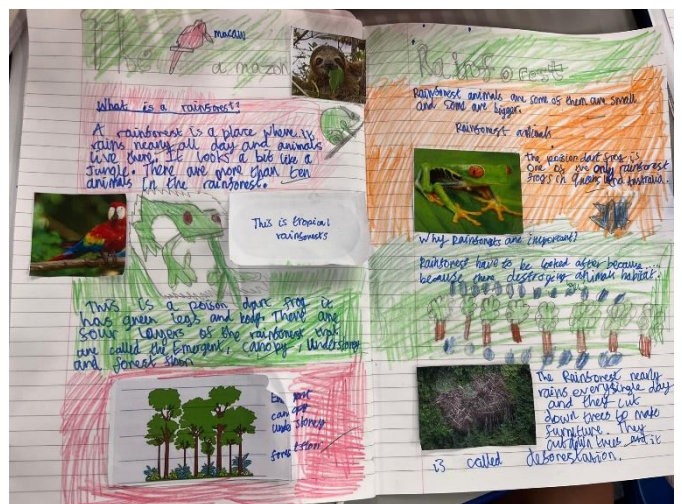 The
macaw
amazon
What is a rainforest?
A rainforest is a place where it
rains nearly all day and animals
live there. It looks a bit like a
Jungle. There are more than ten
animals in the rainforest.
This is tropical
rainforests
This is a poison dart frog it
has green legs and body. There are
four layers of the rainforest that
are called the Emergent, canopy, understorey
and forest floor.
understorey
Rainforest
Rainforest animals are some of them are small
and some are bigger.
Rainforest animals
the poison dart frog is
one of
only rainforest
frogs in
and Australia.
Why Rainforests are important?
Rainforest have to be looked after because....
because there destroying animals habitat.
The Rainforest nearly
rains every single day
and they cut
down trees to make
furniture. They
cut down trees and it
is called deforestation.